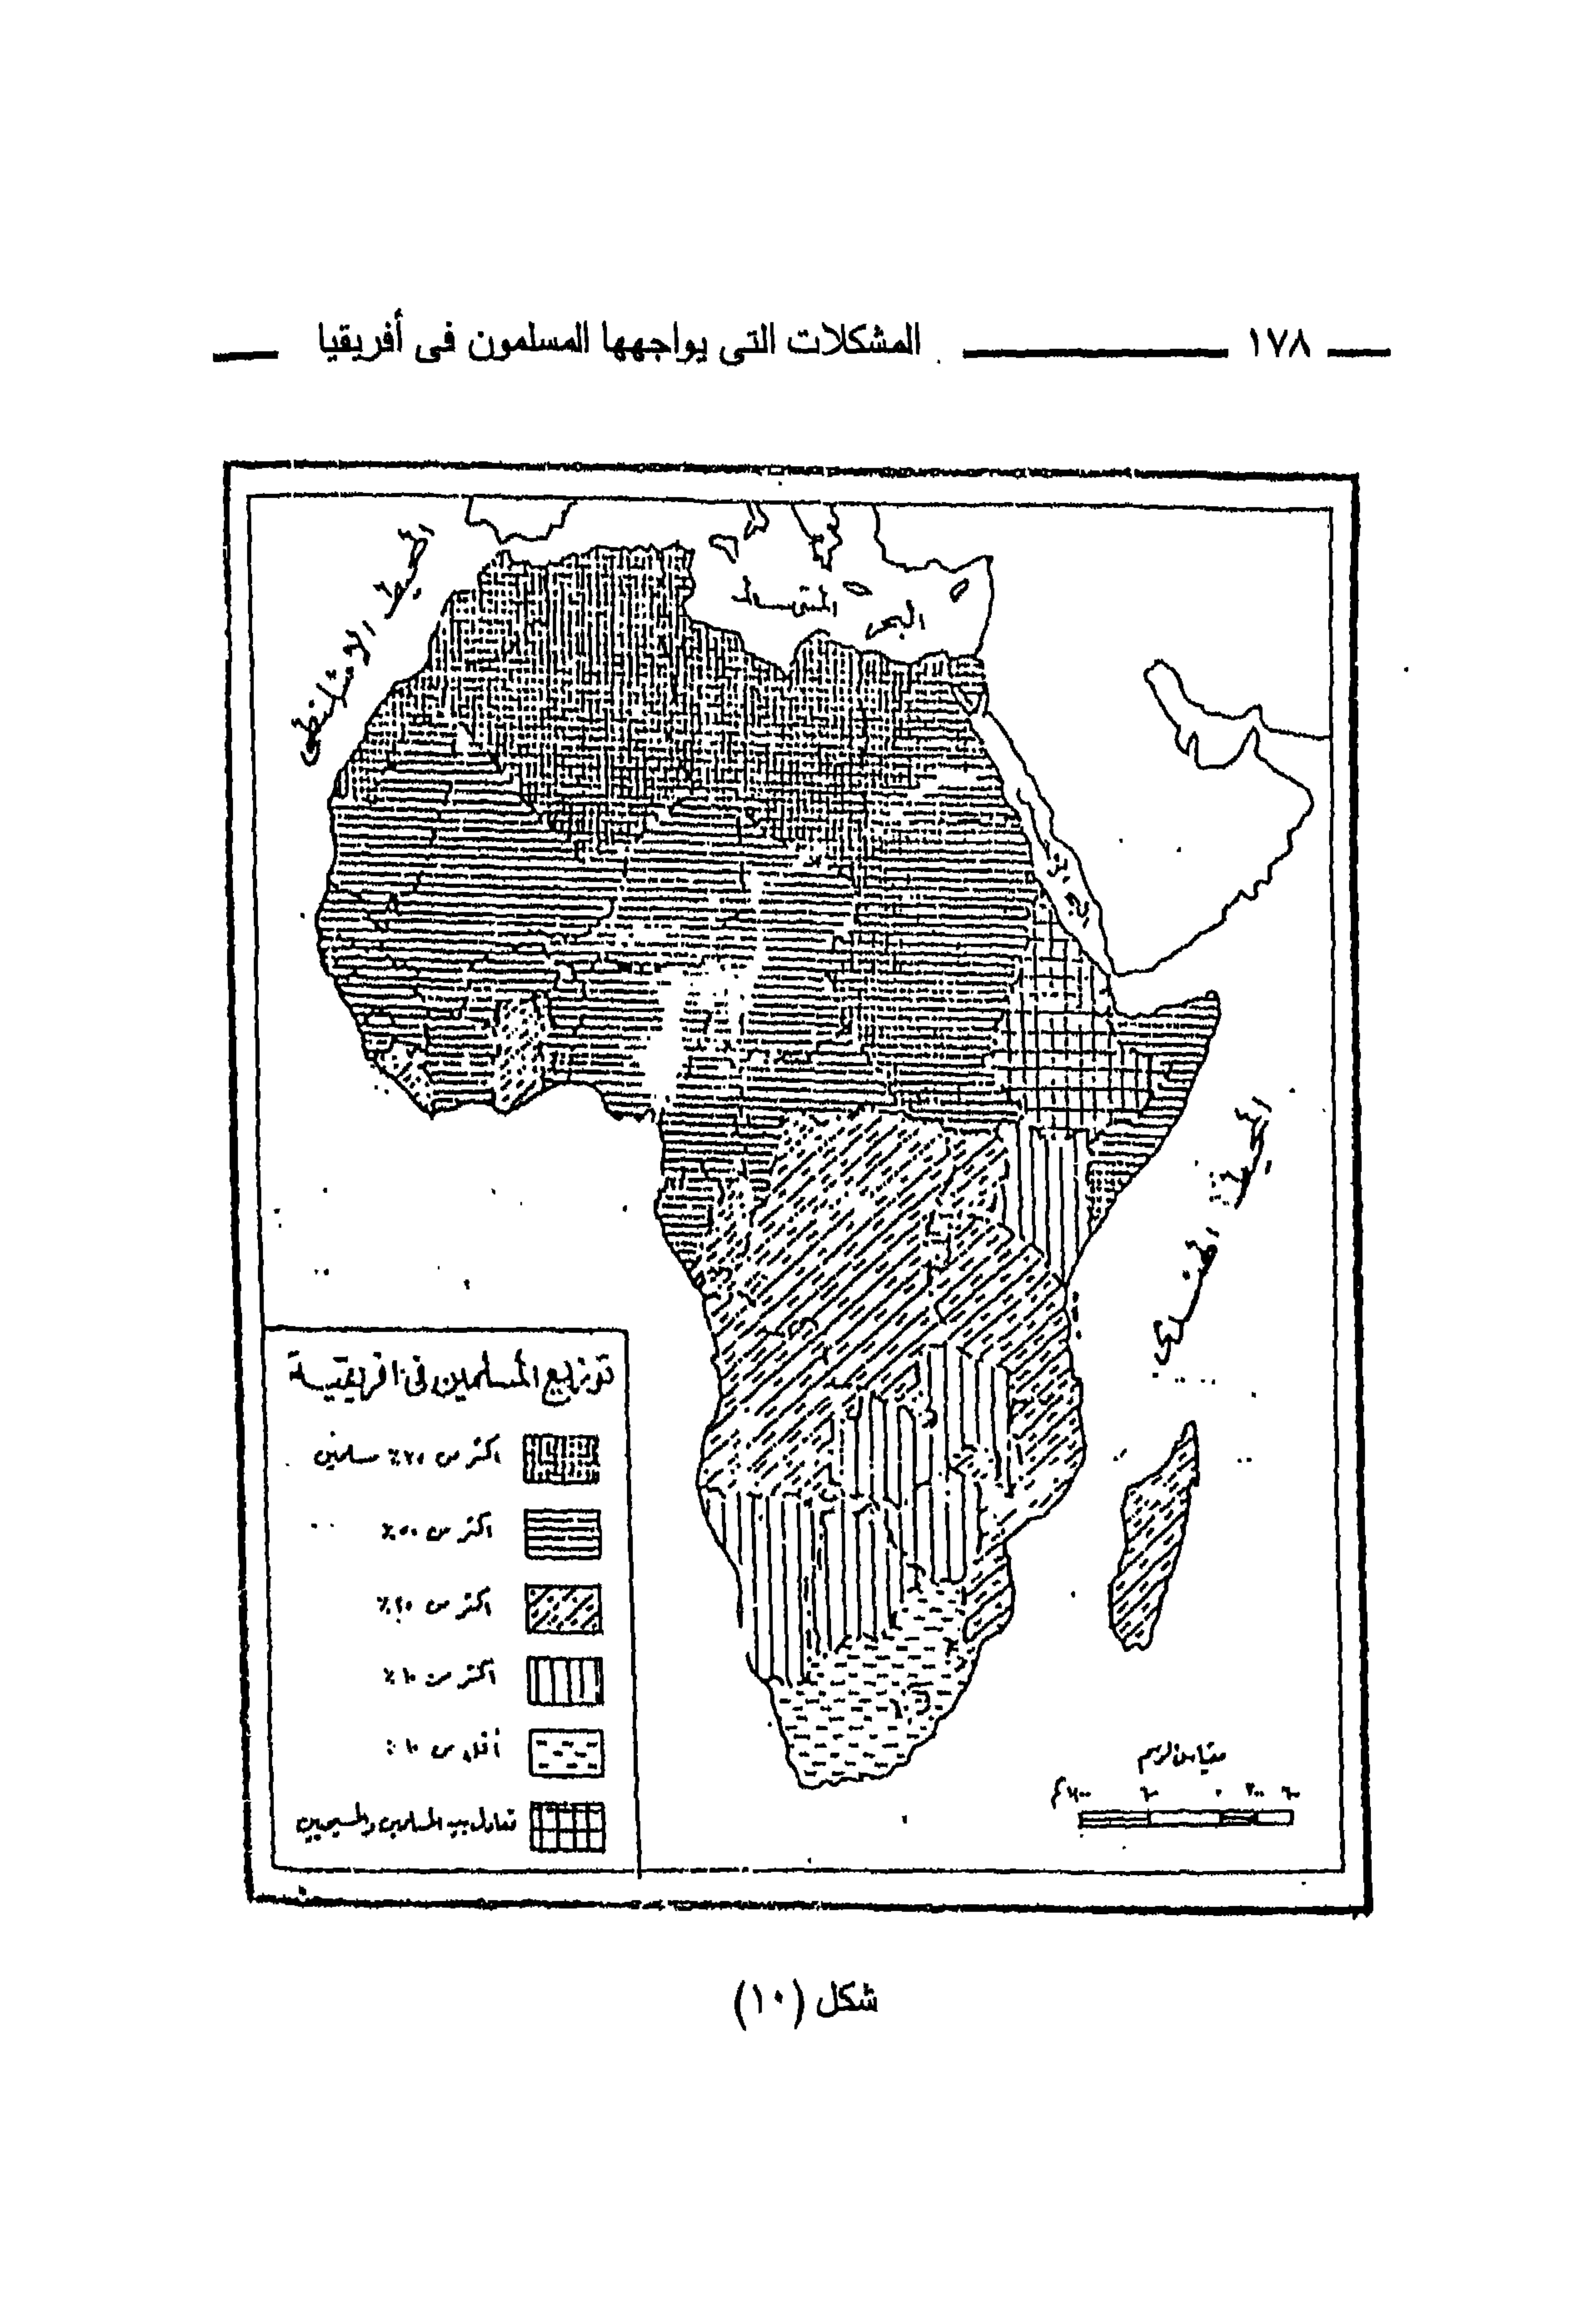 ١٧٨ المشكلات التى يواجهها المسلمون فى أفريقيا
المحيط الاطلنطى
البحر المتوسط
البحر
المحيط الهندى
توزيع المسلمين فى افريقية
اكثر من ٧٠٪ مسلمين
اكثر من ٥٠٪
اكثر من ٢٠٪
اكثر من ١٠٪
أقل من ١٠٪
تعادل بين المسلمين والمسيحيين
مقياس الرسم
شكل (١٠)